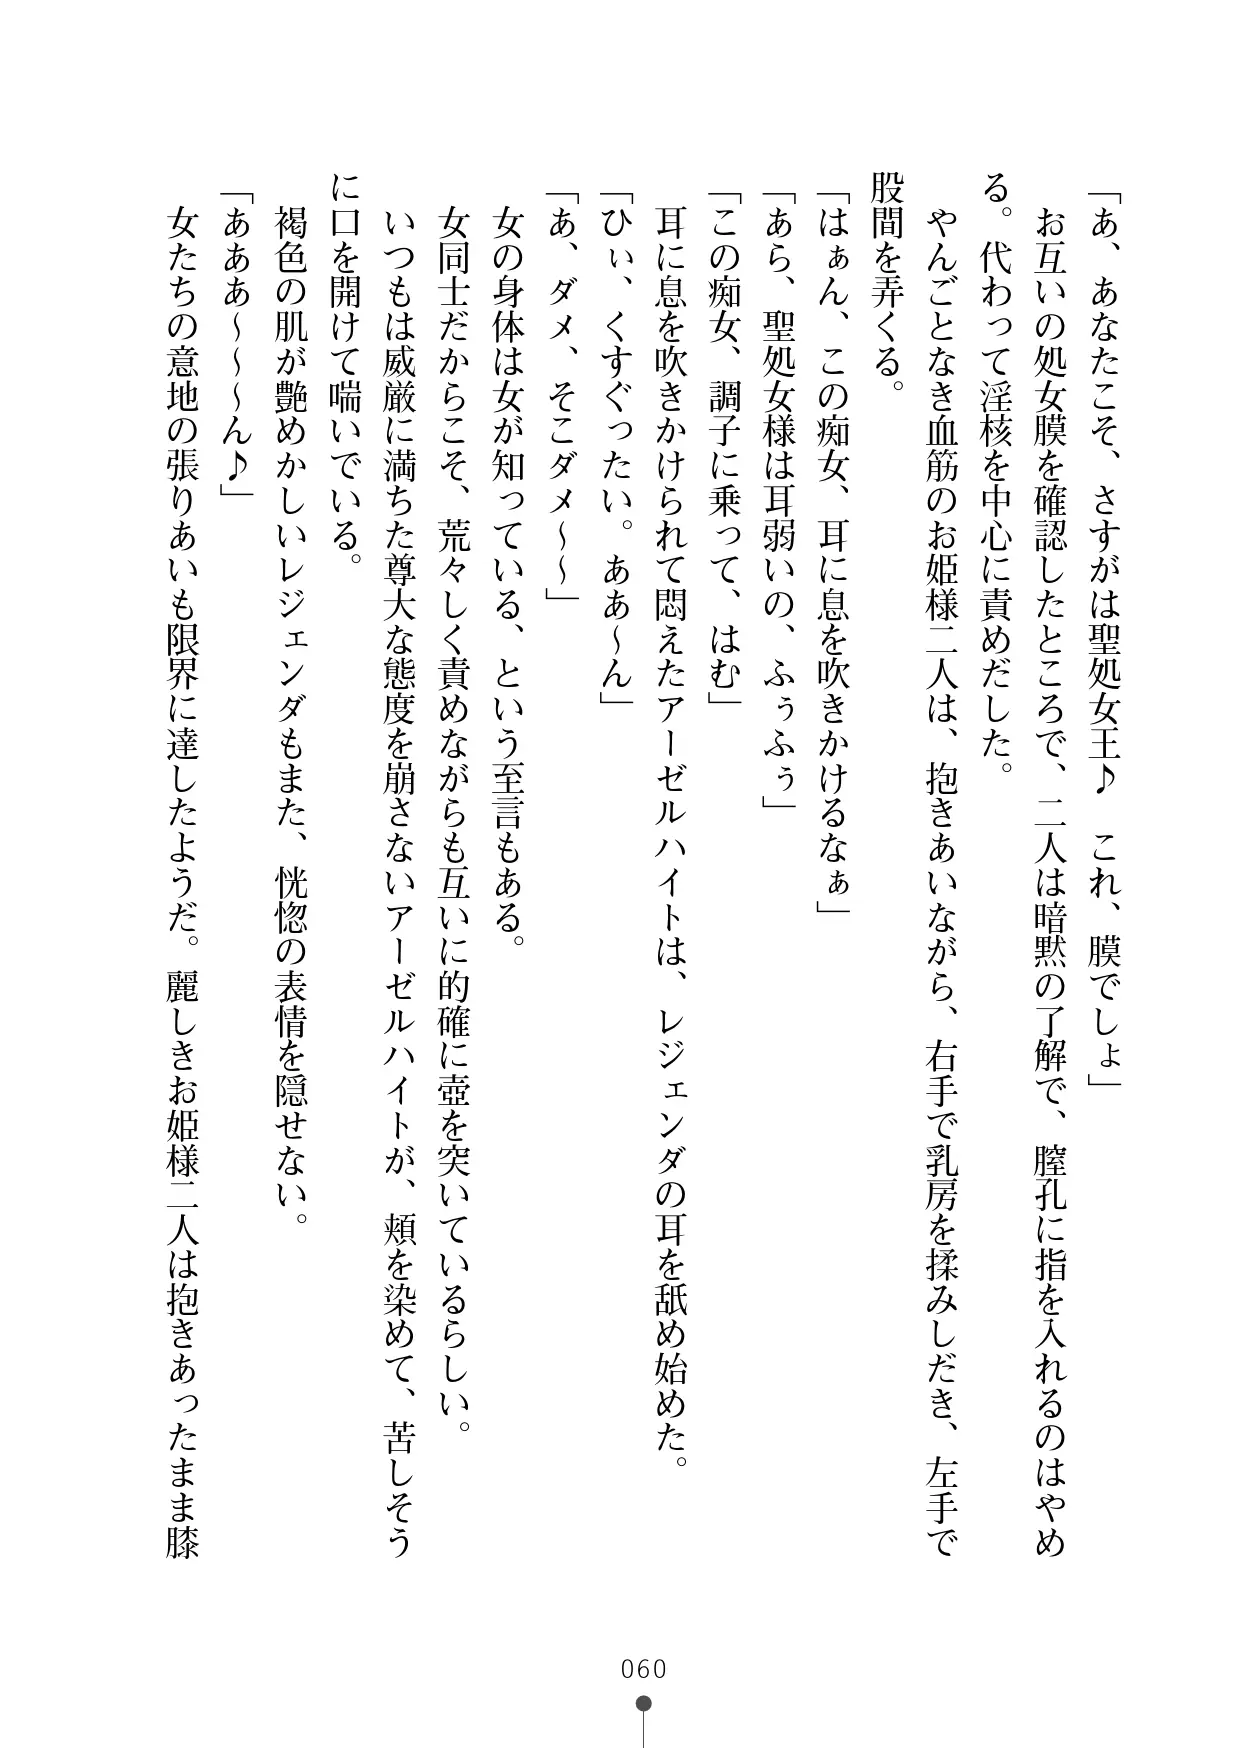 「あ、あなたこそ、さすがは聖処女王♪　これ、膜でしょ」
　お互いの処女膜を確認したところで、二人は暗黙の了解で、膣孔に指を入れるのはやめ
る。代わって淫核を中心に責めだした。
　やんごとなき血筋のお姫様二人は、抱きあいながら、右手で乳房を揉みしだき、左手で
股間を弄くる。
「はぁん、この痴女、耳に息を吹きかけるなぁ」
「あら、聖処女様は耳弱いの、ふぅふぅ」
「この痴女、調子に乗って、はむ」
　耳に息を吹きかけられて悶えたアーゼルハイトは、レジェンダの耳を舐め始めた。
「ひぃ、くすぐったい。ああ～ん」
「あ、ダメ、そこダメ～～」
　女の身体は女が知っている、という至言もある。
　女同士だからこそ、荒々しく責めながらも互いに的確に壺を突いているらしい。
　いつもは威厳に満ちた尊大な態度を崩さないアーゼルハイトが、頬を染めて、苦しそう
に口を開けて喘いでいる。
　褐色の肌が艶めかしいレジェンダもまた、恍惚の表情を隠せない。
「あああ～～～ん♪」
　女たちの意地の張りあいも限界に達したようだ。麗しきお姫様二人は抱きあったまま膝
060